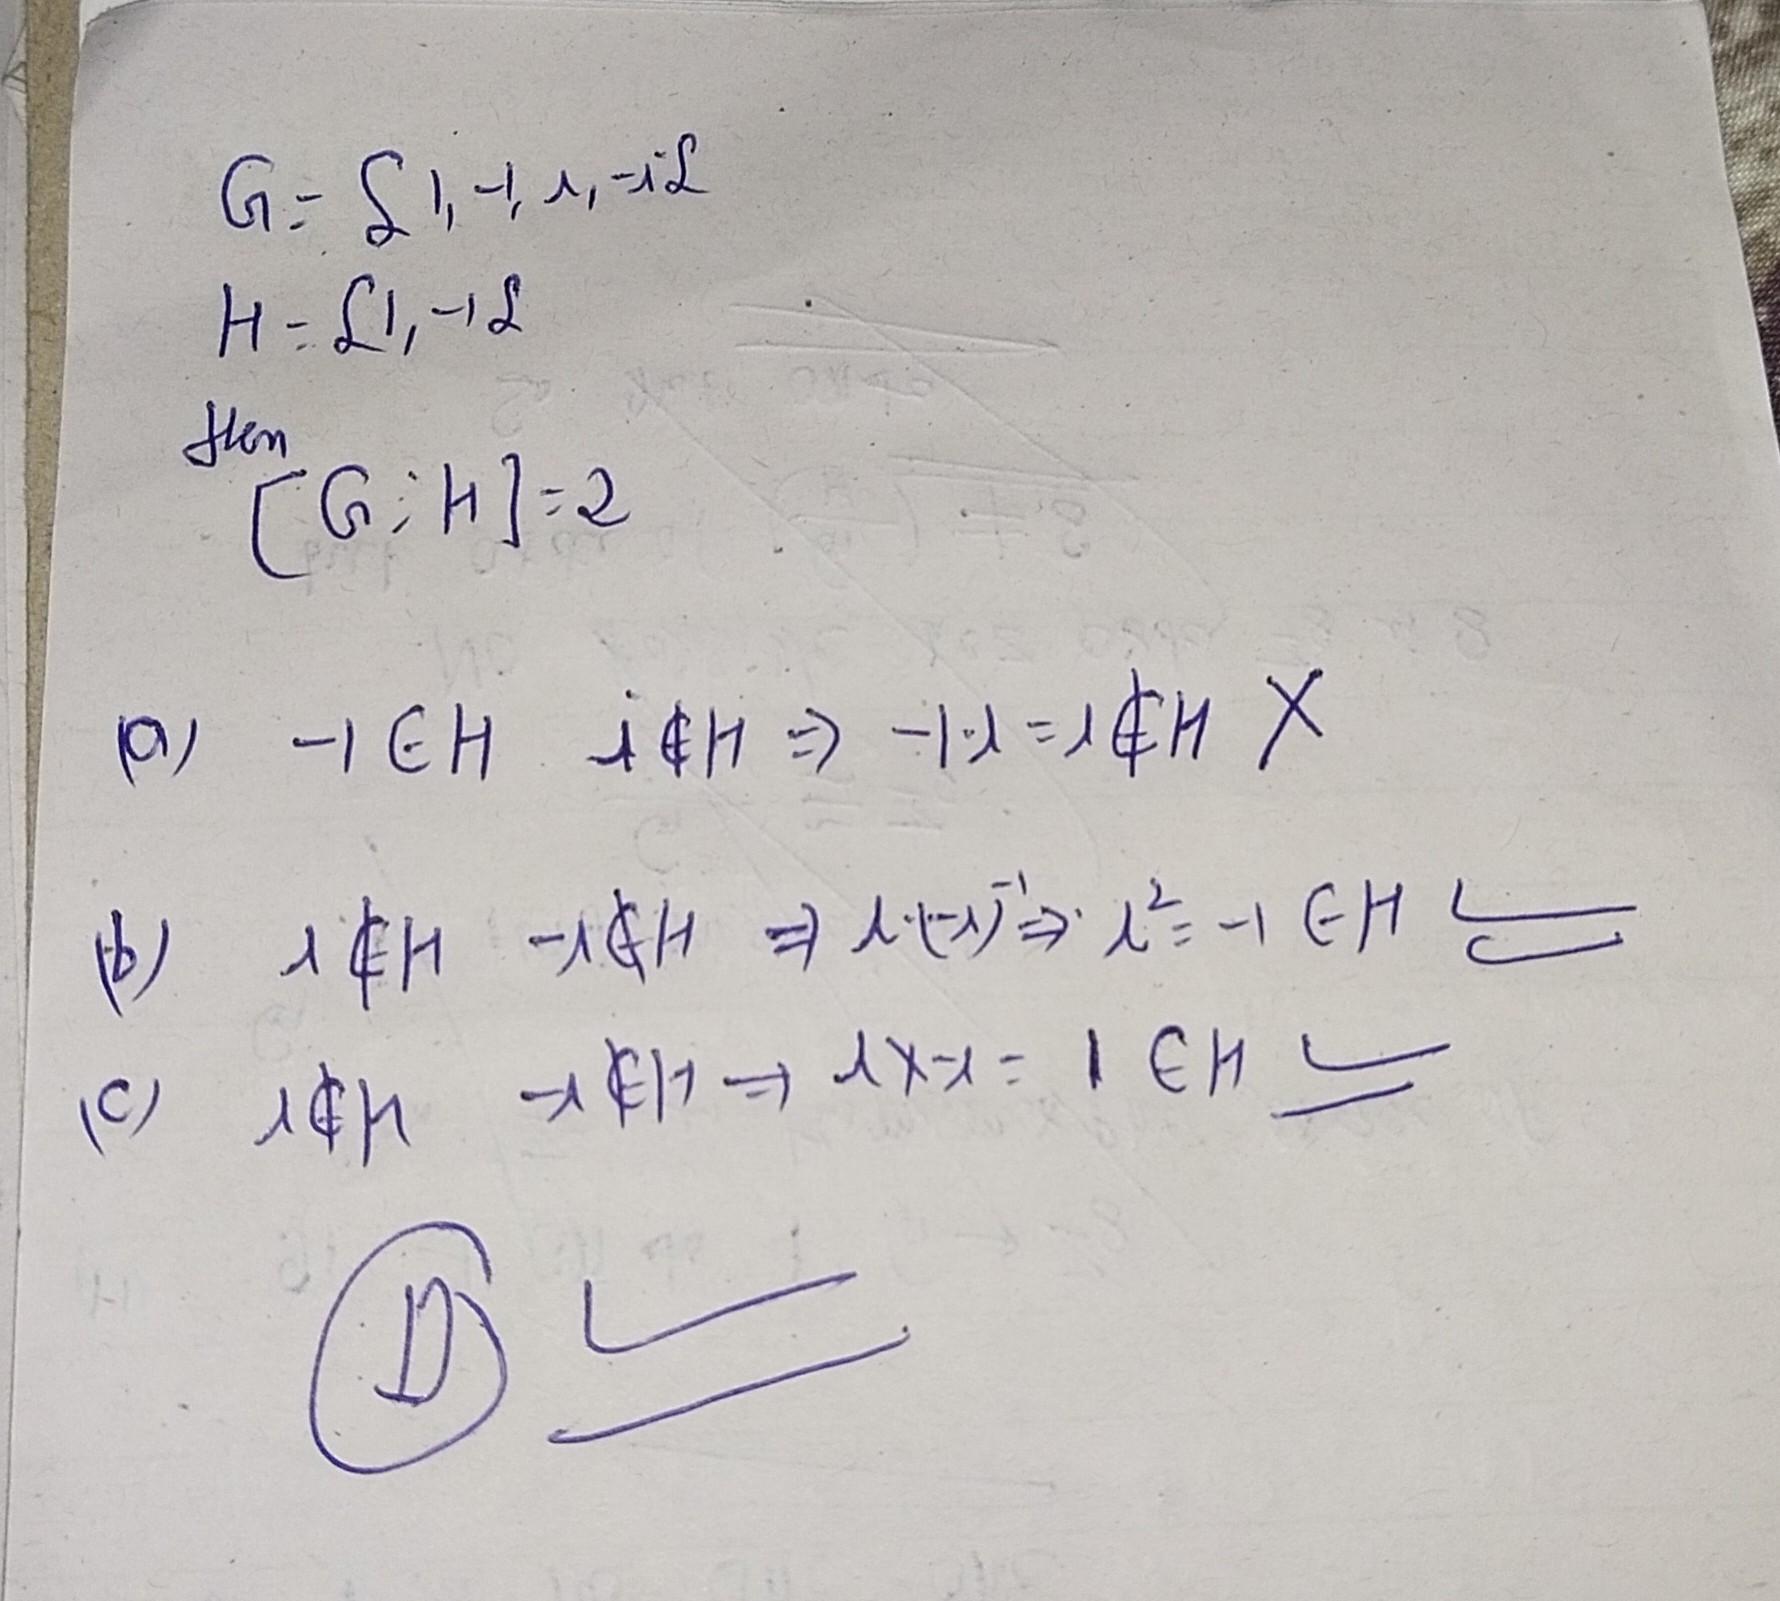 G = {1, -1, i, -i}
H = {1, -1}
then
[G : H] = 2
(a) -1 ∈ H i ∉ H ⇒ -1·i = i ∉ H X
(b) i ∉ H -i ∉ H ⇒ i·(-i)⁻¹ ⇒ i² = -1 ∈ H
(c) i ∉ H -i ∉ H ⇒ i x -i = 1 ∈ H
D